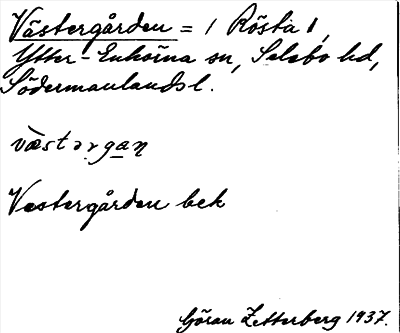 Västergården = 1 Rösta 1,
Ytter-Enhörna sn, Selebo hd,
Södermanlands l.
væ̀stərgan
Vestergården bek
Göran Zetterberg 1937.